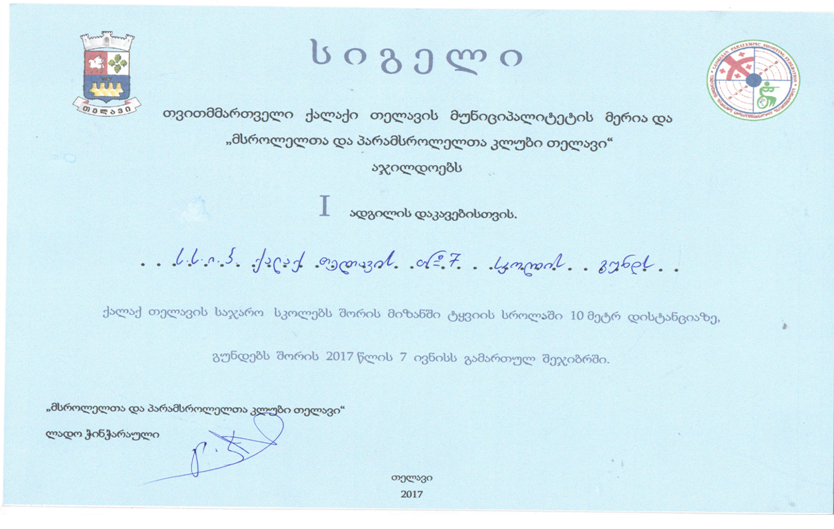 სიგელი
თელავი
თვითმმართველი ქალაქი თელავის მუნიციპალიტეტის მერია და
„მსროლელთა და პარამსროლელთა კლუბი თელავი“
აჯილდოებს
I ადგილის დაკავებისთვის.
ქალაქ თელავის საჯარო სკოლებს შორის მიზანში ტყვიის სროლაში 10 მეტრ დისტანციაზე,
გუნდებს შორის 2017 წლის 7 ივნისს გამართულ შეჯიბრში.
„მსროლელთა და პარამსროლელთა კლუბი თელავი“
ლადო ჭინჭარაული
თელავი
2017